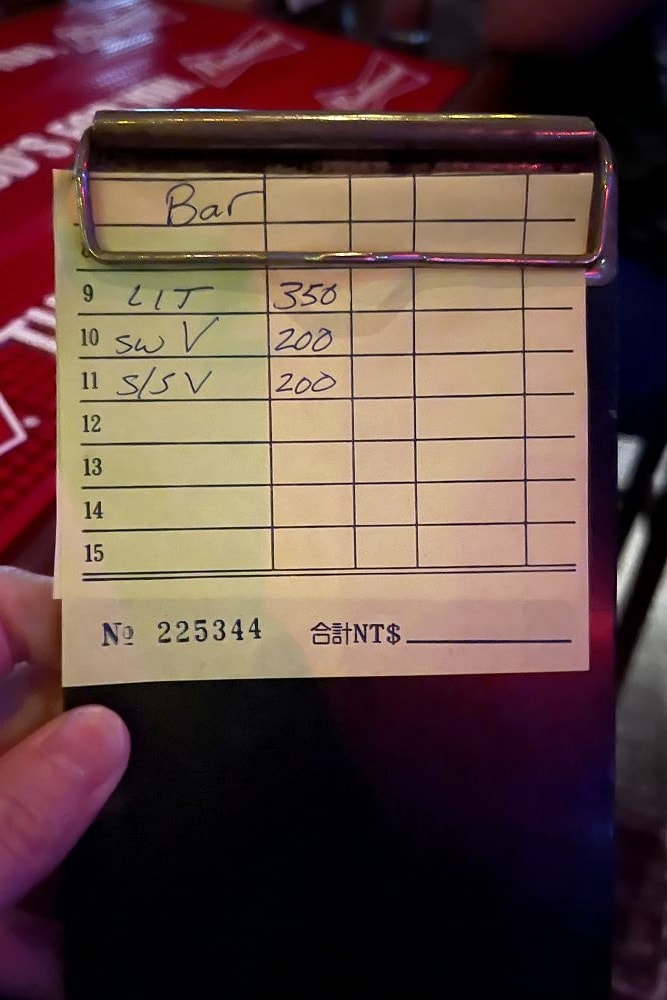 Bar
9 LIT 350
10 SW V 200
11 S/S V 200
12
13
14
15
№ 225344 合計NT$